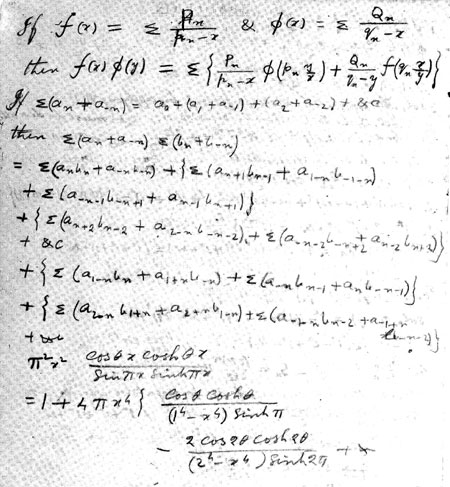 If f(x) = Σ Pn/(pn-x) & φ(x) = Σ Qn/(qn-x)
then f(x) φ(y) = Σ { Pn/(pn-x) φ(pn y/x) + Qn/(qn-y) f(qn x/y) }
If Σ(an + a-n) = a0 + (a1 + a-1) + (a2 + a-2) + &c
then Σ(an + a-n) Σ(bn + b-n)
= Σ(an bn + a-n b-n) + { Σ(an+1 bn-1 + a1-n b-1-n)
+ Σ(a-n-1 b-n+1 + an-1 bn+1) }
+ { Σ(an+2 bn-2 + a2-n b-n-2) + Σ(a-n-2 b-n+2 + an-2 bn+2) }
+ &c
+ { Σ(a1-n bn + a1+n b-n) + Σ(a-n bn-1 + an b-n-1) }
+ { Σ(a2-n b1+n + a2+n b1-n) + Σ(
+ &c
π²x² cosθx coshθx / sinπx sinhπx
= 1 + 4πx⁴ { cosθ coshθ / (1⁴-x⁴) sinhπ
- 2 cos2θ cosh2θ / (2⁴-x⁴) sinh2π +